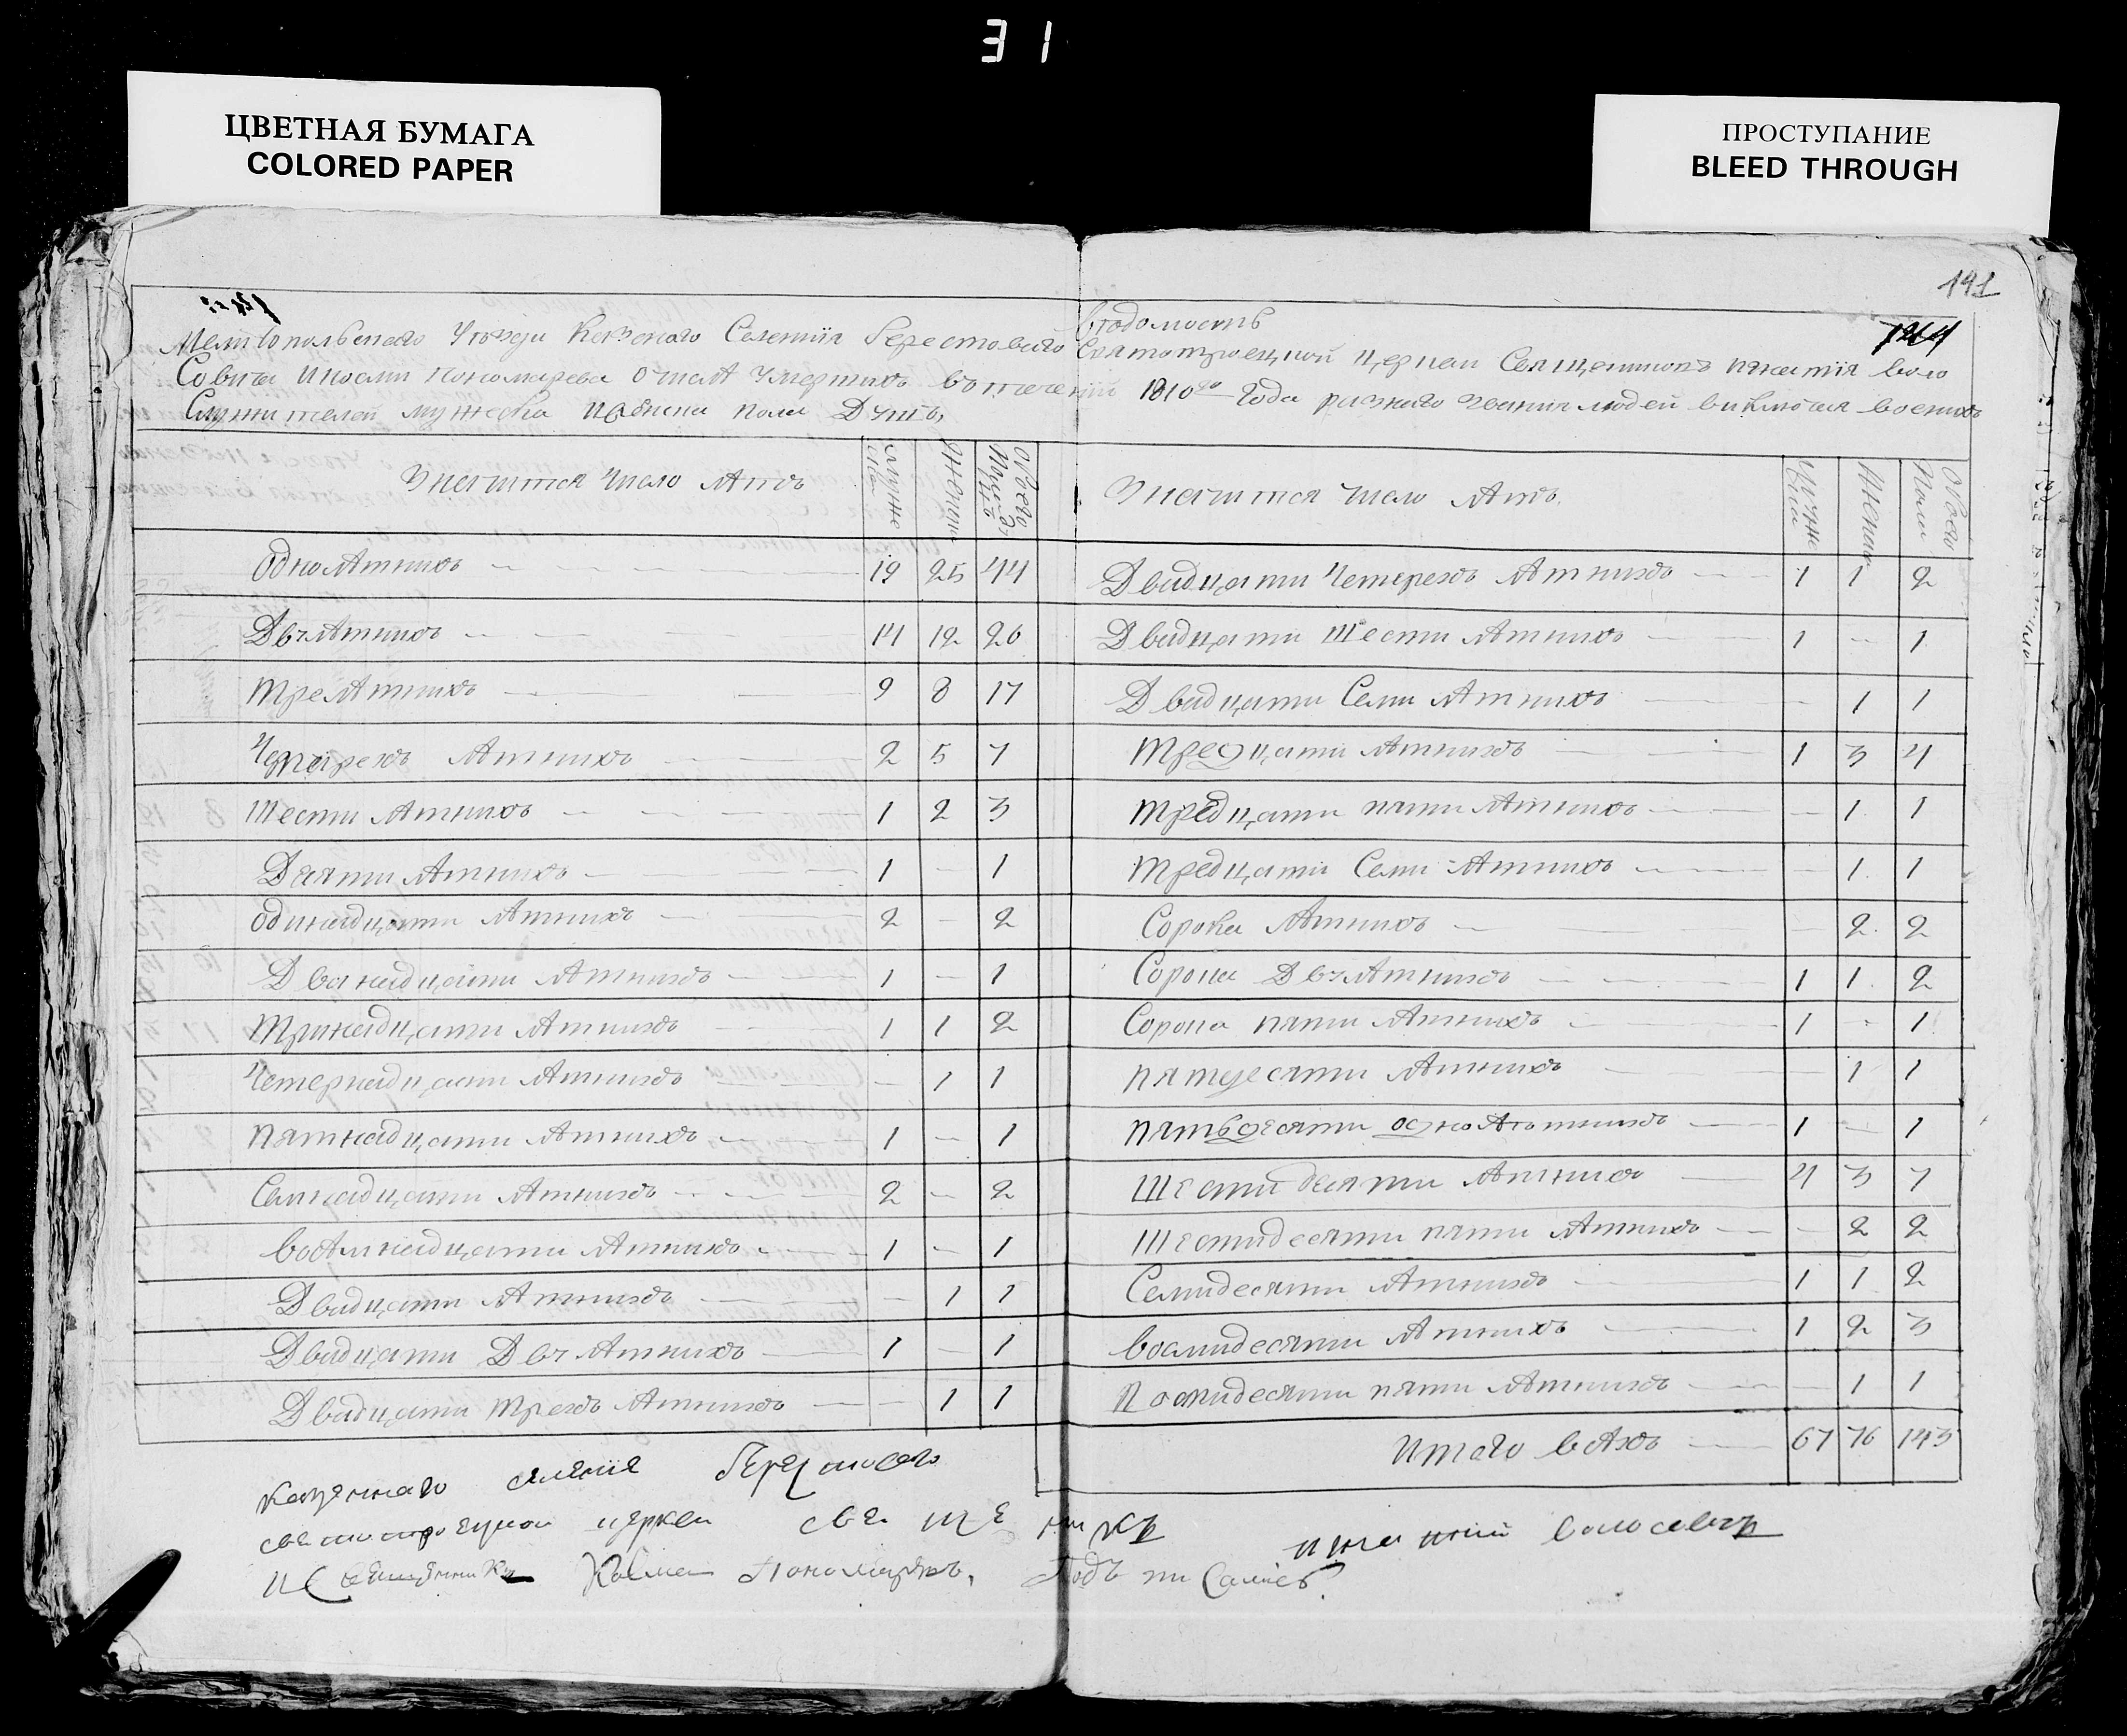 31
ЦВЕТНАЯ БУМАГА
COLORED PAPER
ПРОСТУПАНИЕ
BLEED THROUGH
191
Ведомость
Мелитопольскаго Уезду Казенаго Селения Берестоваго Святотроецкой церкви Священиковъ Игнатия Воло
Совича и Косми Пономарева о числе Умершихъ в течении 1810го Года разнаго звания людей виключая воених
Служителей мужеска и женска пола Душъ,
Значится число летъ
мужеска
женска
обоего пола
Однолетнихъ 19 25 44
Двулетнихъ 14 12 26
Трелетнихъ 9 8 17
Четырехъ летнихъ 2 5 7
Шести летнихъ 1 2 3
Девяти летнихъ 1 - 1
Одинадцати летнихъ 2 - 2
Дванадцати летнихъ 1 - 1
Тринадцати летнихъ 1 1 2
Четернадцати летнихъ - 1 1
Пятнадцати летнихъ 1 - 1
Семнадцати летнихъ 2 - 2
Восемнадцати летнихъ 1 - 1
Двадцати летнихъ - 1 1
Двадцати Двулетнихъ 1 - 1
Двадцати трехъ летнихъ - 1 1
Значится число летъ
Мужеска
Женска
Обоего Пола
Двадцати Четерехъ летнихъ 1 1 2
Двадцати Шести летнихъ 1 - 1
Двадцати Семи летнихъ - 1 1
Тредцати летнихъ 1 3 4
Тредцати пяти летнихъ - 1 1
Тредцати Семи летнихъ - 1 1
Сорока летнихъ - 2 2
Сорока Двулетнихъ 1 1 2
Сорока пяти летнихъ 1 - 1
Пятдесяти летнихъ - 1 1
Пятьдесяти однолетнихъ 1 - 1
Шестидесяти летнихъ 4 3 7
Шестидесяти пяти летнихъ - 2 2
Семидесяти летнихъ 1 1 2
Восмидесяти летнихъ 1 2 3
летнихъ - 1 1
Итого всехъ 67 76 143
Казеннаго селения Берестового
святотроецкой церкви священникъ
Игнатий Волосовичъ
И Священникъ Косма Пономаревъ, Подъписались